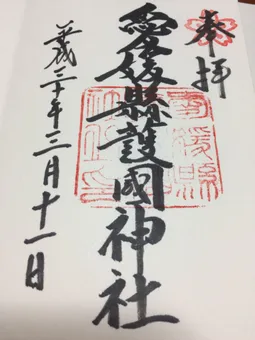 奉拝
愛媛縣護國神社
平成三十年三月十一日